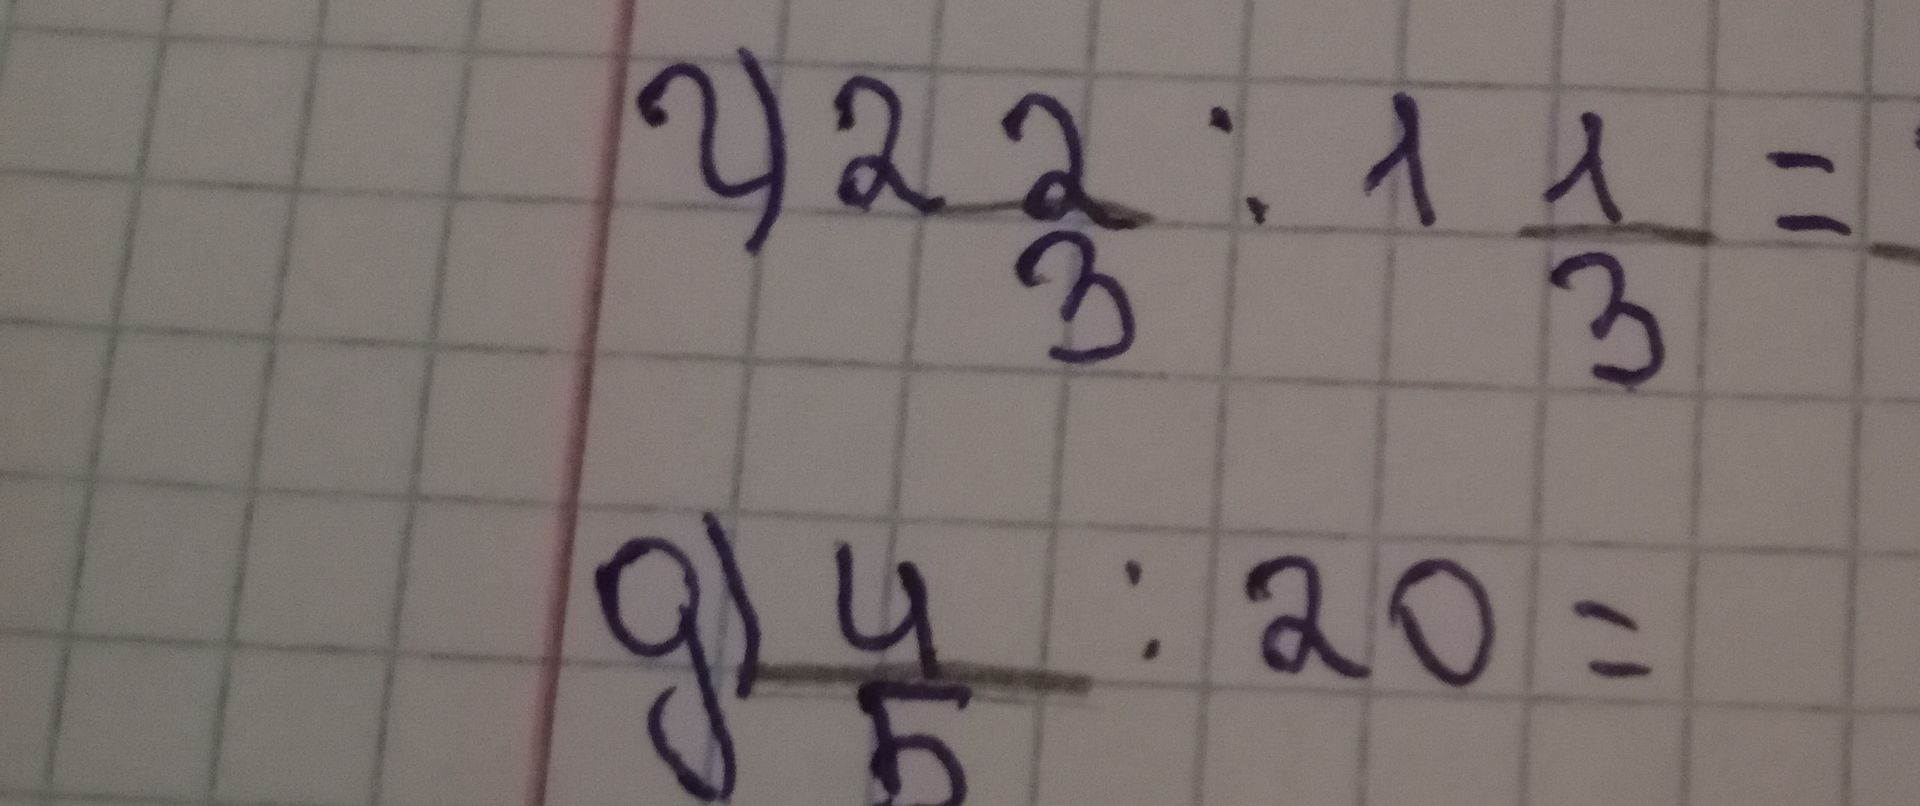 г) 2 2/3 : 1 1/3 =
д) 4/5 : 20 =